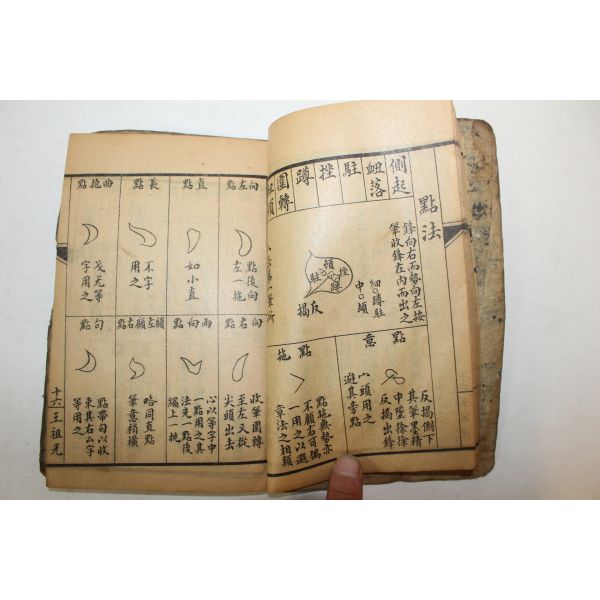 點法
側起
衄落
駐
挫
蹲
圍轉
鋒向右而勢向左按
筆收鋒在內而出之
細o蹲駐
中o頓
挫
頓
蹲
駐
反揭
點意
反揭側下
其筆墨精
中墮徐徐
反揭出鋒
山頭用之
避其旁點
點拖
點拖無勢亦
不顧右可偏
一用之以避
章法之相類
點左向
點後向
左一拖
點直
如小直
點長
不字
用之
點拖曲
戈尤等
字用之
點右向
收筆圍轉
至左又從
尖頭出去
點向兩
心以等字中
一點用之其
法先一點後
繼上一挑
點右顧左顧
略同直點
筆意稍橫
點句
點帶句以收
束其右厶字
等用之
十六
王祖光